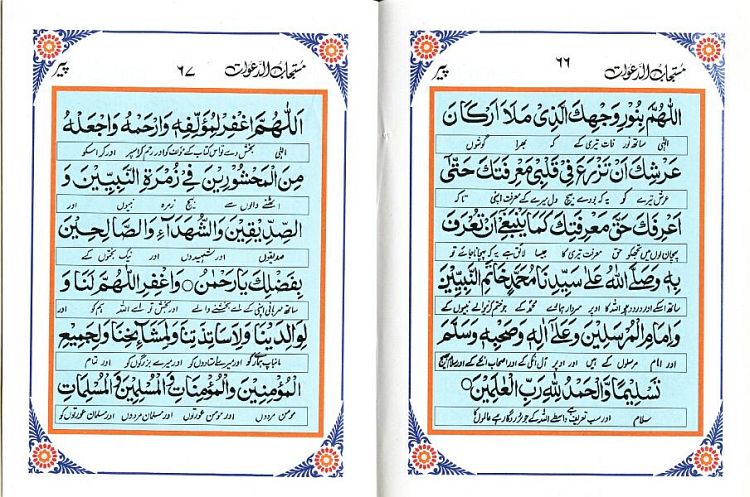 مستجاب الدعوات ۶۶ پیر
اَللّٰهُمَّ بِنُوْرِ وَجْهِكَ الَّذِیْ مَلَأَ اَرْكَانَ
الٰہی ساتھ نور ذات تیری کے کہ بھرا گوشوں
عَرْشِكَ اَنْ تَزْرَعَ فِیْ قَلْبِیْ مَعْرِفَتَكَ حَتّٰی
عرش تیرے کو یہ کہ بودے بیچ دل میرے کے معرفت اپنی تاکہ
اَعْرِفَكَ حَقَّ مَعْرِفَتِكَ كَمَا یَنْبَغِیْ اَنْ تُعْرَفَ
پہچان لوں میں تجھکو حق معرفت تیری کا جیسا لائق ہے یہ کہ پہچانا جائے تو
بِهٖ وَصَلَّی اللّٰهُ عَلٰی سَیِّدِنَا مُحَمَّدٍ خَاتَمِ النَّبِیِّیْنَ
ساتھ اسکے اور درود بھیجو اللہ کا اوپر سردار ہمارے محمد کے جو ختم کرنیوالے نبیوں کے
وَاِمَامِ الْمُرْسَلِیْنَ وَعَلٰی اٰلِهٖ وَصَحْبِهٖ وَسَلَّمَ
اور امام مرسلوں کے ہیں اور اوپر آل انکی کے اور اصحاب انکے کے اور سلام بھیج
تَسْلِیْمًا وَّالْحَمْدُ لِلّٰهِ رَبِّ الْعٰلَمِیْنَ
سلام اور سب تعریف ہے واسطے اللہ کے جو پروردگار ہے عالموں کا
مستجاب الدعوات ۶۷ پیر
اَللّٰهُمَّ اغْفِرْ لِمُؤَلِّفِهٖ وَارْحَمْهُ وَاجْعَلْهُ
الٰہی بخش دے تو اس کتاب کے مؤلف کو اور رحم کر اسپر اور کر اسکو
مِنَ الْمَحْشُوْرِیْنَ فِیْ زُمْرَةِ النَّبِیِّیْنَ وَ
اٹھنے والوں سے بیچ زمرہ نبیوں اور
الصِّدِّیْقِیْنَ وَالشُّهَدَآءِ وَالصَّالِحِیْنَ
صدیقوں اور شہیدوں اور نیک بختوں کے
بِفَضْلِكَ یَا رَحْمٰنُ وَاغْفِرِ اللّٰهُمَّ لَنَا وَ
ساتھ مہربانی اپنی کے اے بخشنے والے اور بخش تو اے اللہ ہم کو اور
لِوَالِدَیْنَا وَلِاَسَاتِذَتِنَا وَلِمَشَآئِخِنَا وَلِجَمِیْعِ
ماں باپ ہمارے کو اور میرے استادوں کو اور میرے بزرگوں کو اور تمام
الْمُؤْمِنِیْنَ وَالْمُؤْمِنَاتِ وَالْمُسْلِمِیْنَ وَالْمُسْلِمَاتِ
مومن مردوں اور مومن عورتوں اور مسلمان مردوں اور مسلمان عورتوں کو